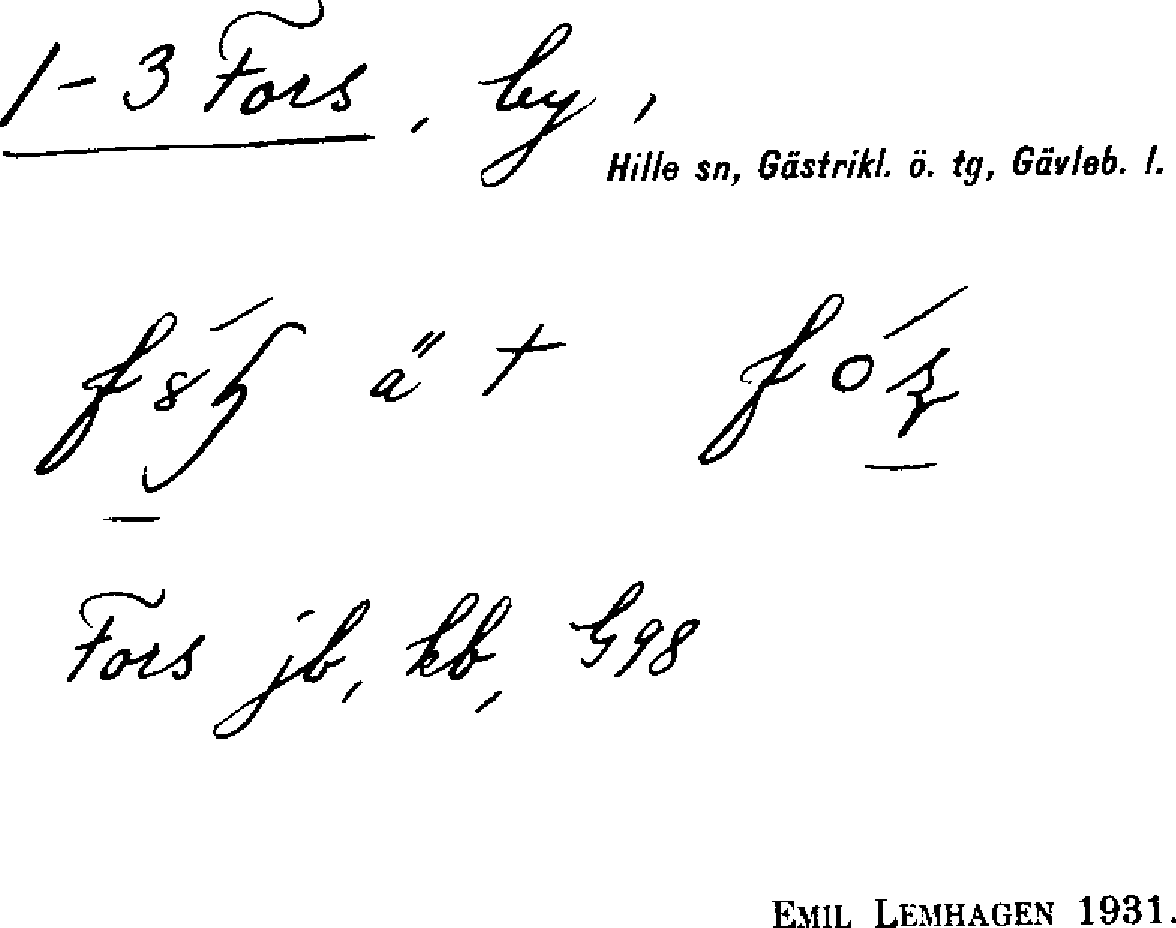 1-3 Fors, by,
Hille sn, Gästrikl. ö. tg, Gävleb. l.
ä †
Fors jb, kb, G98
EMIL LEMHAGEN 1931.